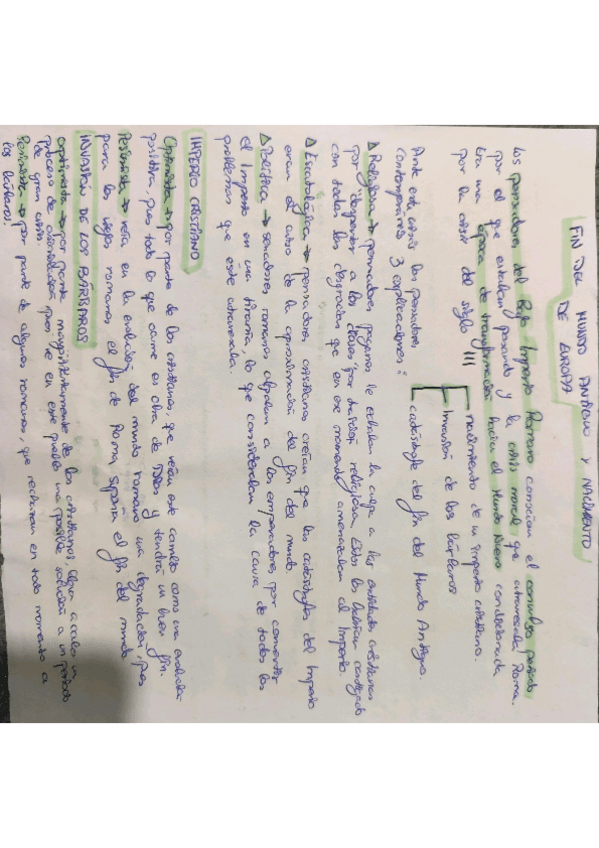 FIN DEL MUNDO ANTIGUO Y NACIMIENTO
DE EUROPA
Los pensadores del Bajo Imperio Romano conocían el convulso periodo
por el que estaban pasando y la crisis moral que atravesaba Roma.
Era una época de transformación hacia el Mundo Nuevo condicionada
por la crisis del siglo III
nacimiento de un imperio cristiano.
Invasión de los bárbaros
catástrofe del fin del Mundo Antiguo.
Ante esta crisis los pensadores
contemporáneos 3 explicaciones:
Δ Religiosa → pensadores paganos le echaban la culpa a las cristianos
por "despertar a los dioses" por traición religiosa. Estos les habrían castigado
con todas las desgracias que en ese momento amenazaban al Imperio.
Δ Escatológica → pensadores cristianos creían que las catástrofes del Imperio
eran el aviso de la aproximación del fin del mundo.
Δ Política → senadores romanos culpaban a los emperadores por convertir
el Imperio en una tiranía, lo que consideraban la causa de todos los
problemas que este atravesaba.
IMPERIO CRISTIANO
Optimista → por parte de los cristianos, que veían este cambio como una evolución
positiva, pues todo lo que ocurre es obra de Dios y tendría un buen fin.
Pesimista → veía en la evolución del mundo romano una degradación, pues
para los viejos romanos el fin de Roma sería el fin del mundo
INVASIÓN DE LOS BÁRBAROS
Optimista → por parte mayoritariamente de los cristianos, llevan a cabo un
proceso de pues ve en este pueblo una posible solución a un periodo
de gran crisis.
Pesimista → por parte de algunos romanos, que rechazan en todo momento a
los bárbaros.